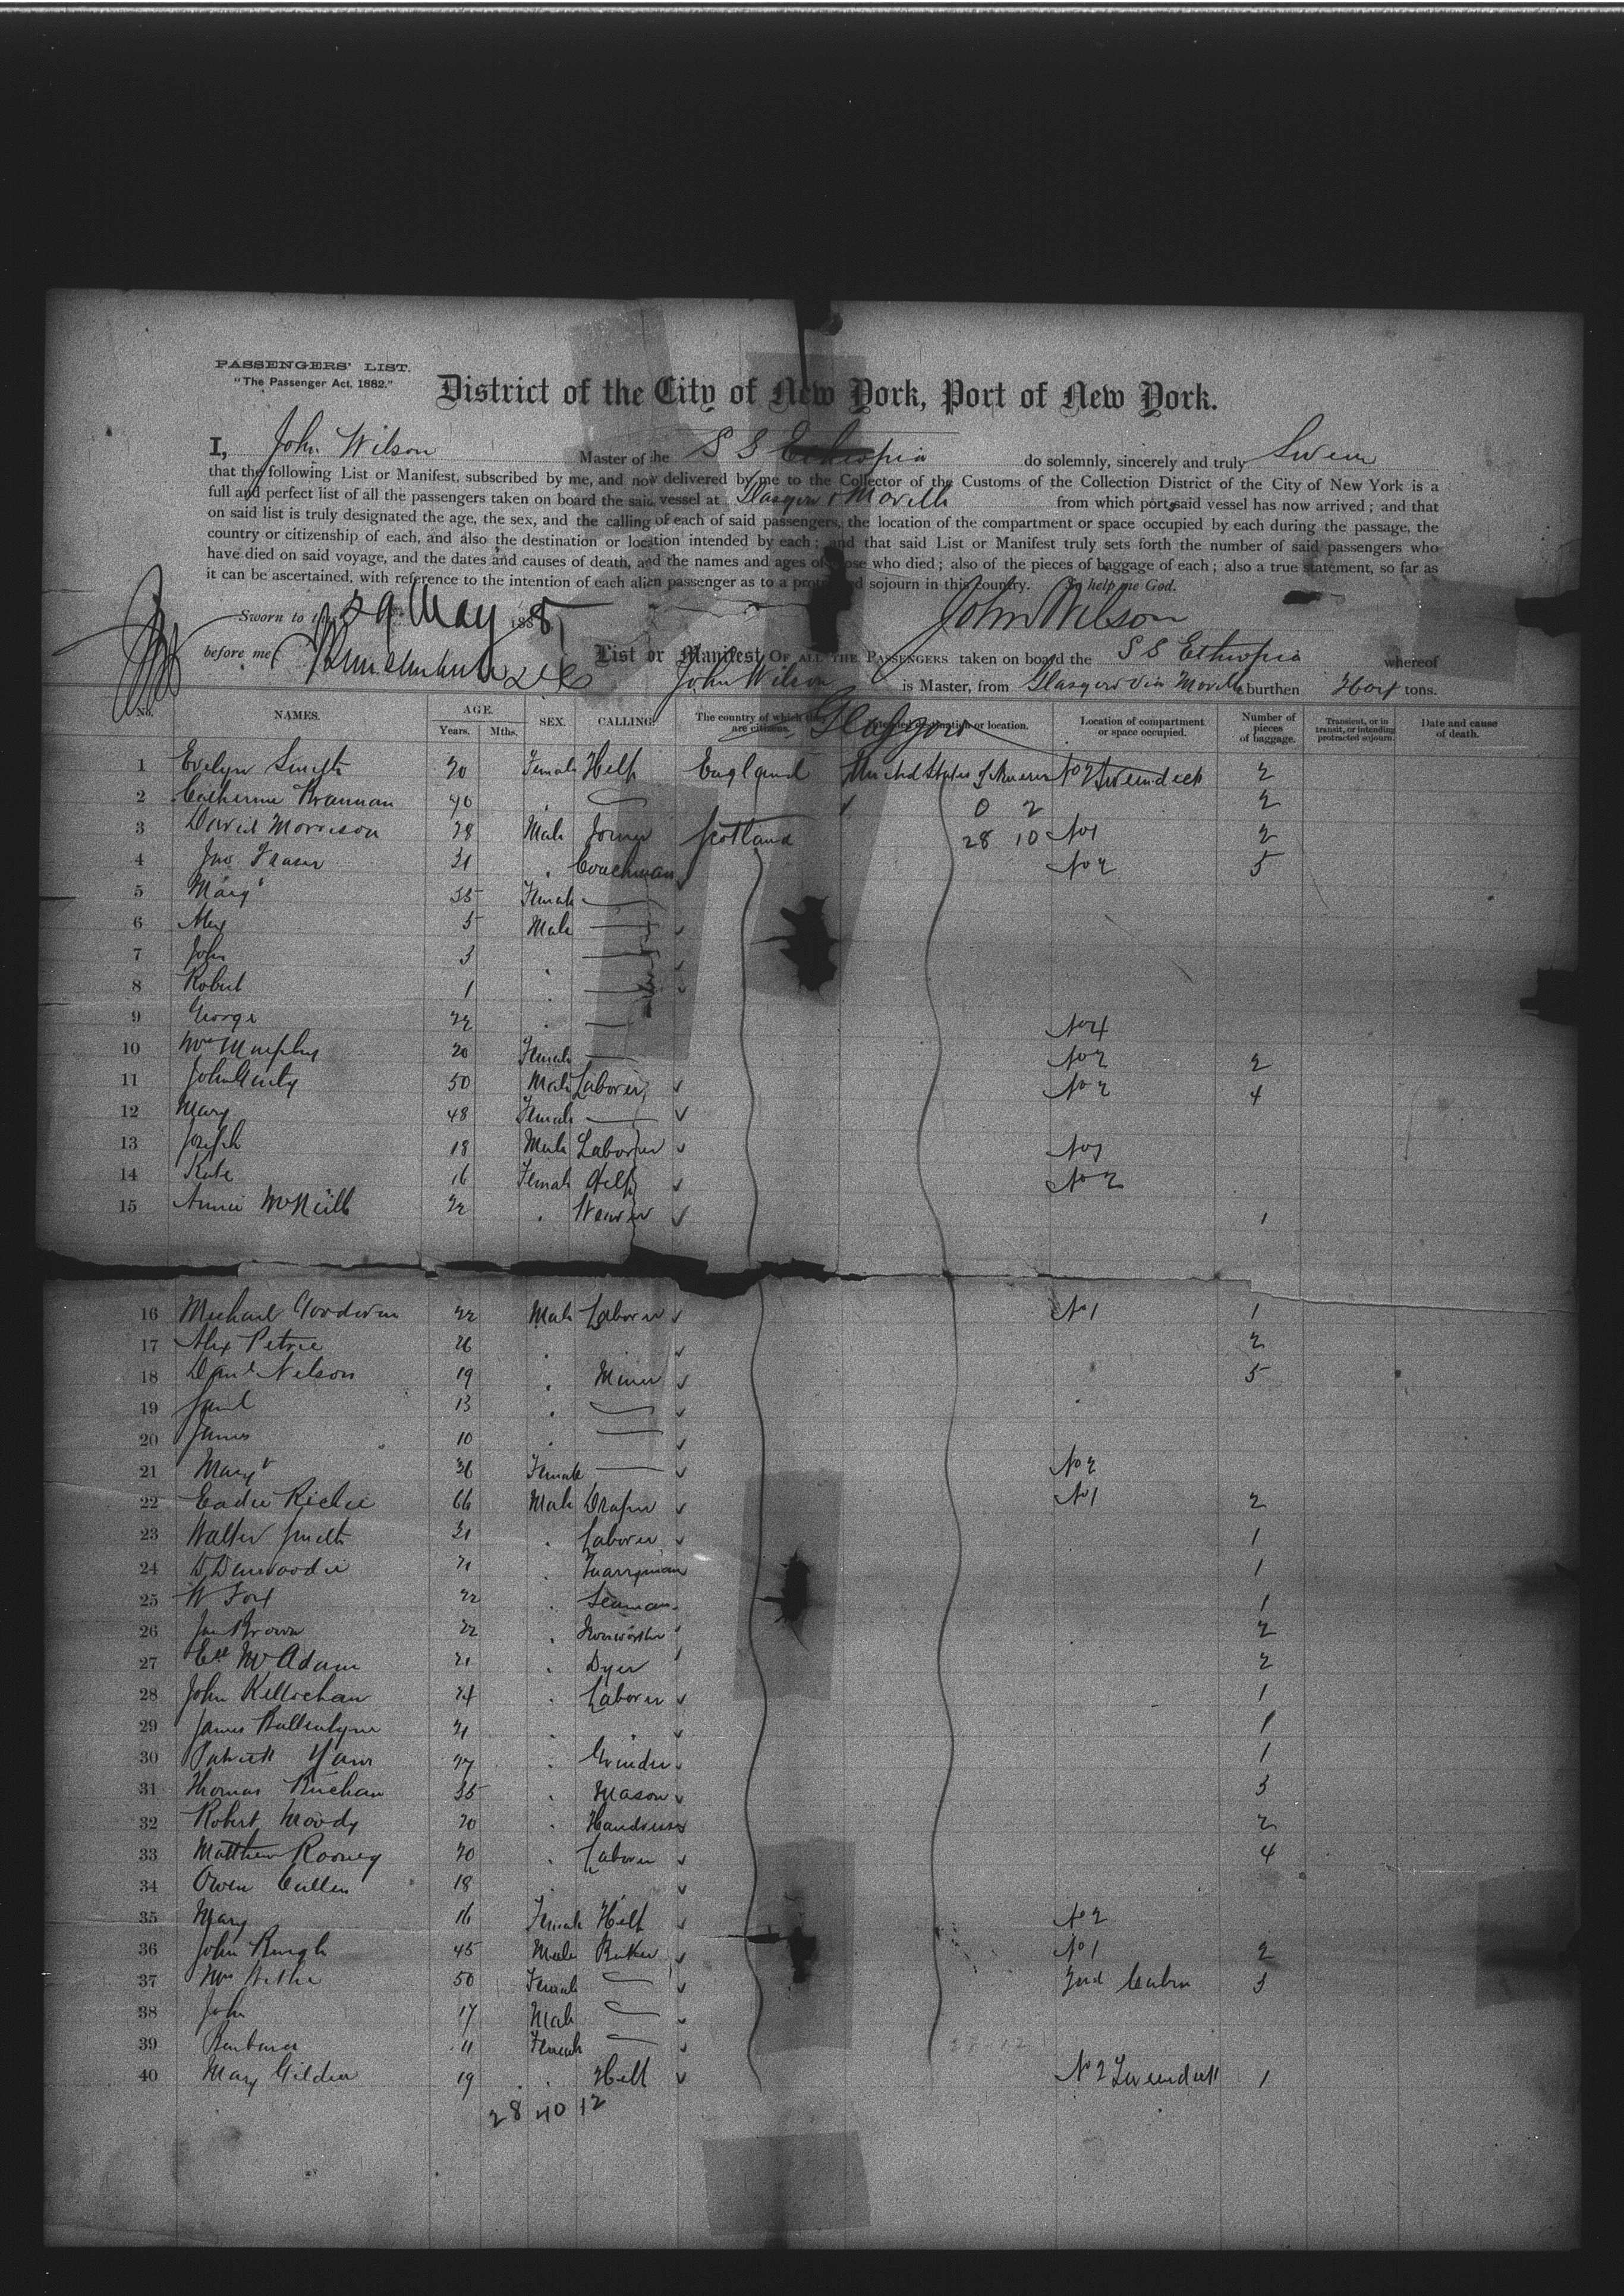 PASSENGERS' LIST.
"The Passenger Act, 1882."
District of the City of New York, Port of New York.
I, John Wilson Master of the S S Ethiopia do solemnly, sincerely and truly Swear
that the following List or Manifest, subscribed by me, and now delivered by me to the Collector of the Customs of the Collection District of the City of New York is a
full and perfect list of all the passengers taken on board the said vessel at Glasgow & Moville from which port, said vessel has now arrived; and that
on said list is truly designated the age, the sex, and the calling of each of said passengers, the location of the compartment or space occupied by each during the passage, the
country or citizenship of each, and also the destination or location intended by each; and that said List or Manifest truly sets forth the number of said passengers who
have died on said voyage, and the dates and causes of death, and the names and ages of those who died; also of the pieces of baggage of each; also a true statement, so far as
it can be ascertained, with reference to the intention of each alien passenger as to a protracted sojourn in this country. So help me God.
Sworn to this 29 May 1885 John Wilson
before me
List or Manifest OF ALL THE PASSENGERS taken on board the S S Ethiopia whereof
John Wilson is Master, from Glasgow via Moville burthen tons.
Glasgow
No. NAMES. AGE. Years. Mths. SEX. CALLING. The country of which they are citizens. Intended destination or location. Location of compartment or space occupied. Number of pieces of baggage. Transient, or in transit, or intending protracted sojourn. Date and cause of death.
1 Evelyn Smith 20 Female Help England United States of America No 2 Tweendeck 2
2 Catherine Brannan 40 2
0 2
3 David Morrison 28 Male Joiner Scotland 28 10 No 1 2
4 Jno Fraser 31 Coachman No 2 5
5 Margt 35 Female
6 Alex 5 Male
7 John 3
8 Robert 1
9 George 22 No 1
10 Mrs Murphy 20 Female No 2 2
11 John 50 Male Laborer No 2 4
12 Mary 48 Female
13 Joseph 18 Male Laborer No 1
14 Kate 16 Female Help No 2
15 Annie McNeill 22 Weaver 1
16 Michael Goodwin 22 Male Laborer No 1 1
17 Alex Petrie 26 2
18 Danl Nelson 19 Miner 5
19 13
20 James 10
21 Margt 36 Female No 2
22 Eadie Richie 66 Male Draper No 1 2
23 Walter Smith 31 Laborer 1
24 D Dinwoodie 21 Quarryman 1
25 W Fox 22 Seaman 1
26 Jas Brown 22 Ironworker 2
27 McAdam 21 Dyer 2
28 John Kellochan 24 Laborer 1
29 James Ballantyne 21 1
30 Patrick 27 Grinder 1
31 Thomas Buchan 35 Mason 3
32 Robert Moody 20 2
33 Matthew Rooney 20 Laborer 4
34 Owen Cullen 18
35 Mary 16 Female Help No 2
36 John Burgh 45 Male Baker No 1 2
37 Mrs 50 Female 2nd Cabin 3
38 John 17 Male
39 Barbara 11 Female
40 Mary Gildea 19 Help No 2 Tweendeck 1
28 40 12